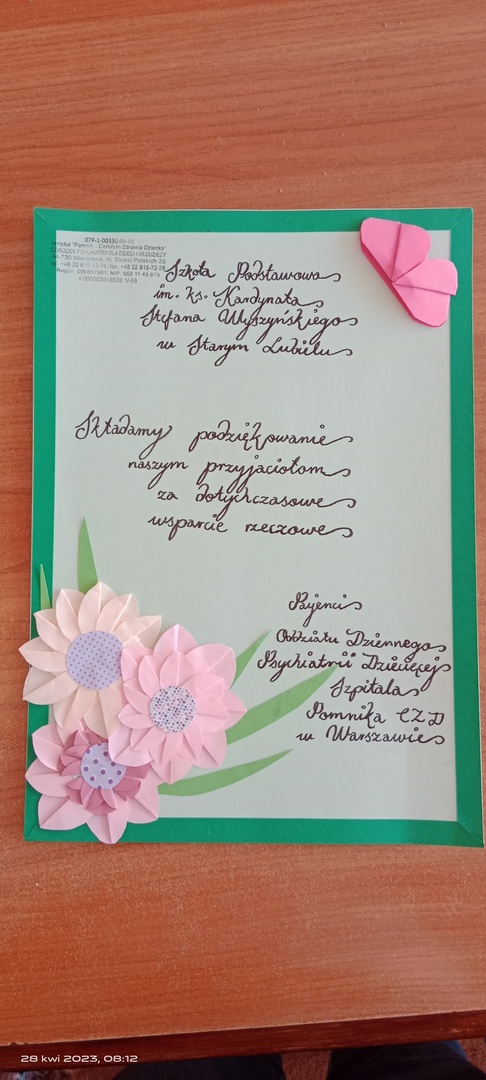 07R-1-00330-04-03
Instytut "Pomnik - Centrum Zdrowia Dziecka"
DLA DZIECI I MŁODZIEŻY
04-730 Warszawa, Al. Dzieci Polskich 20
fax. +48 22 815-
NIP: 952 11 43 675
Szkoła Podstawowa
im. ks. Kardynała
Stefana Wyszyńskiego
w Starym Lubielu
Składamy podziękowanie
naszym przyjaciołom
za dotychczasowe
wsparcie rzeczowe
Pacjenci
Oddziału Dziennego
Psychiatrii Dziecięcej
Szpitala
Pomnika CZD
w Warszawie
28 kwi 2023, 08:12